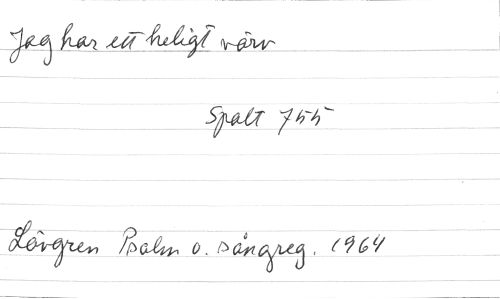 Jag har ett heligt värv
Spalt 755
Lövgren Psalm o. sångreg. 1964